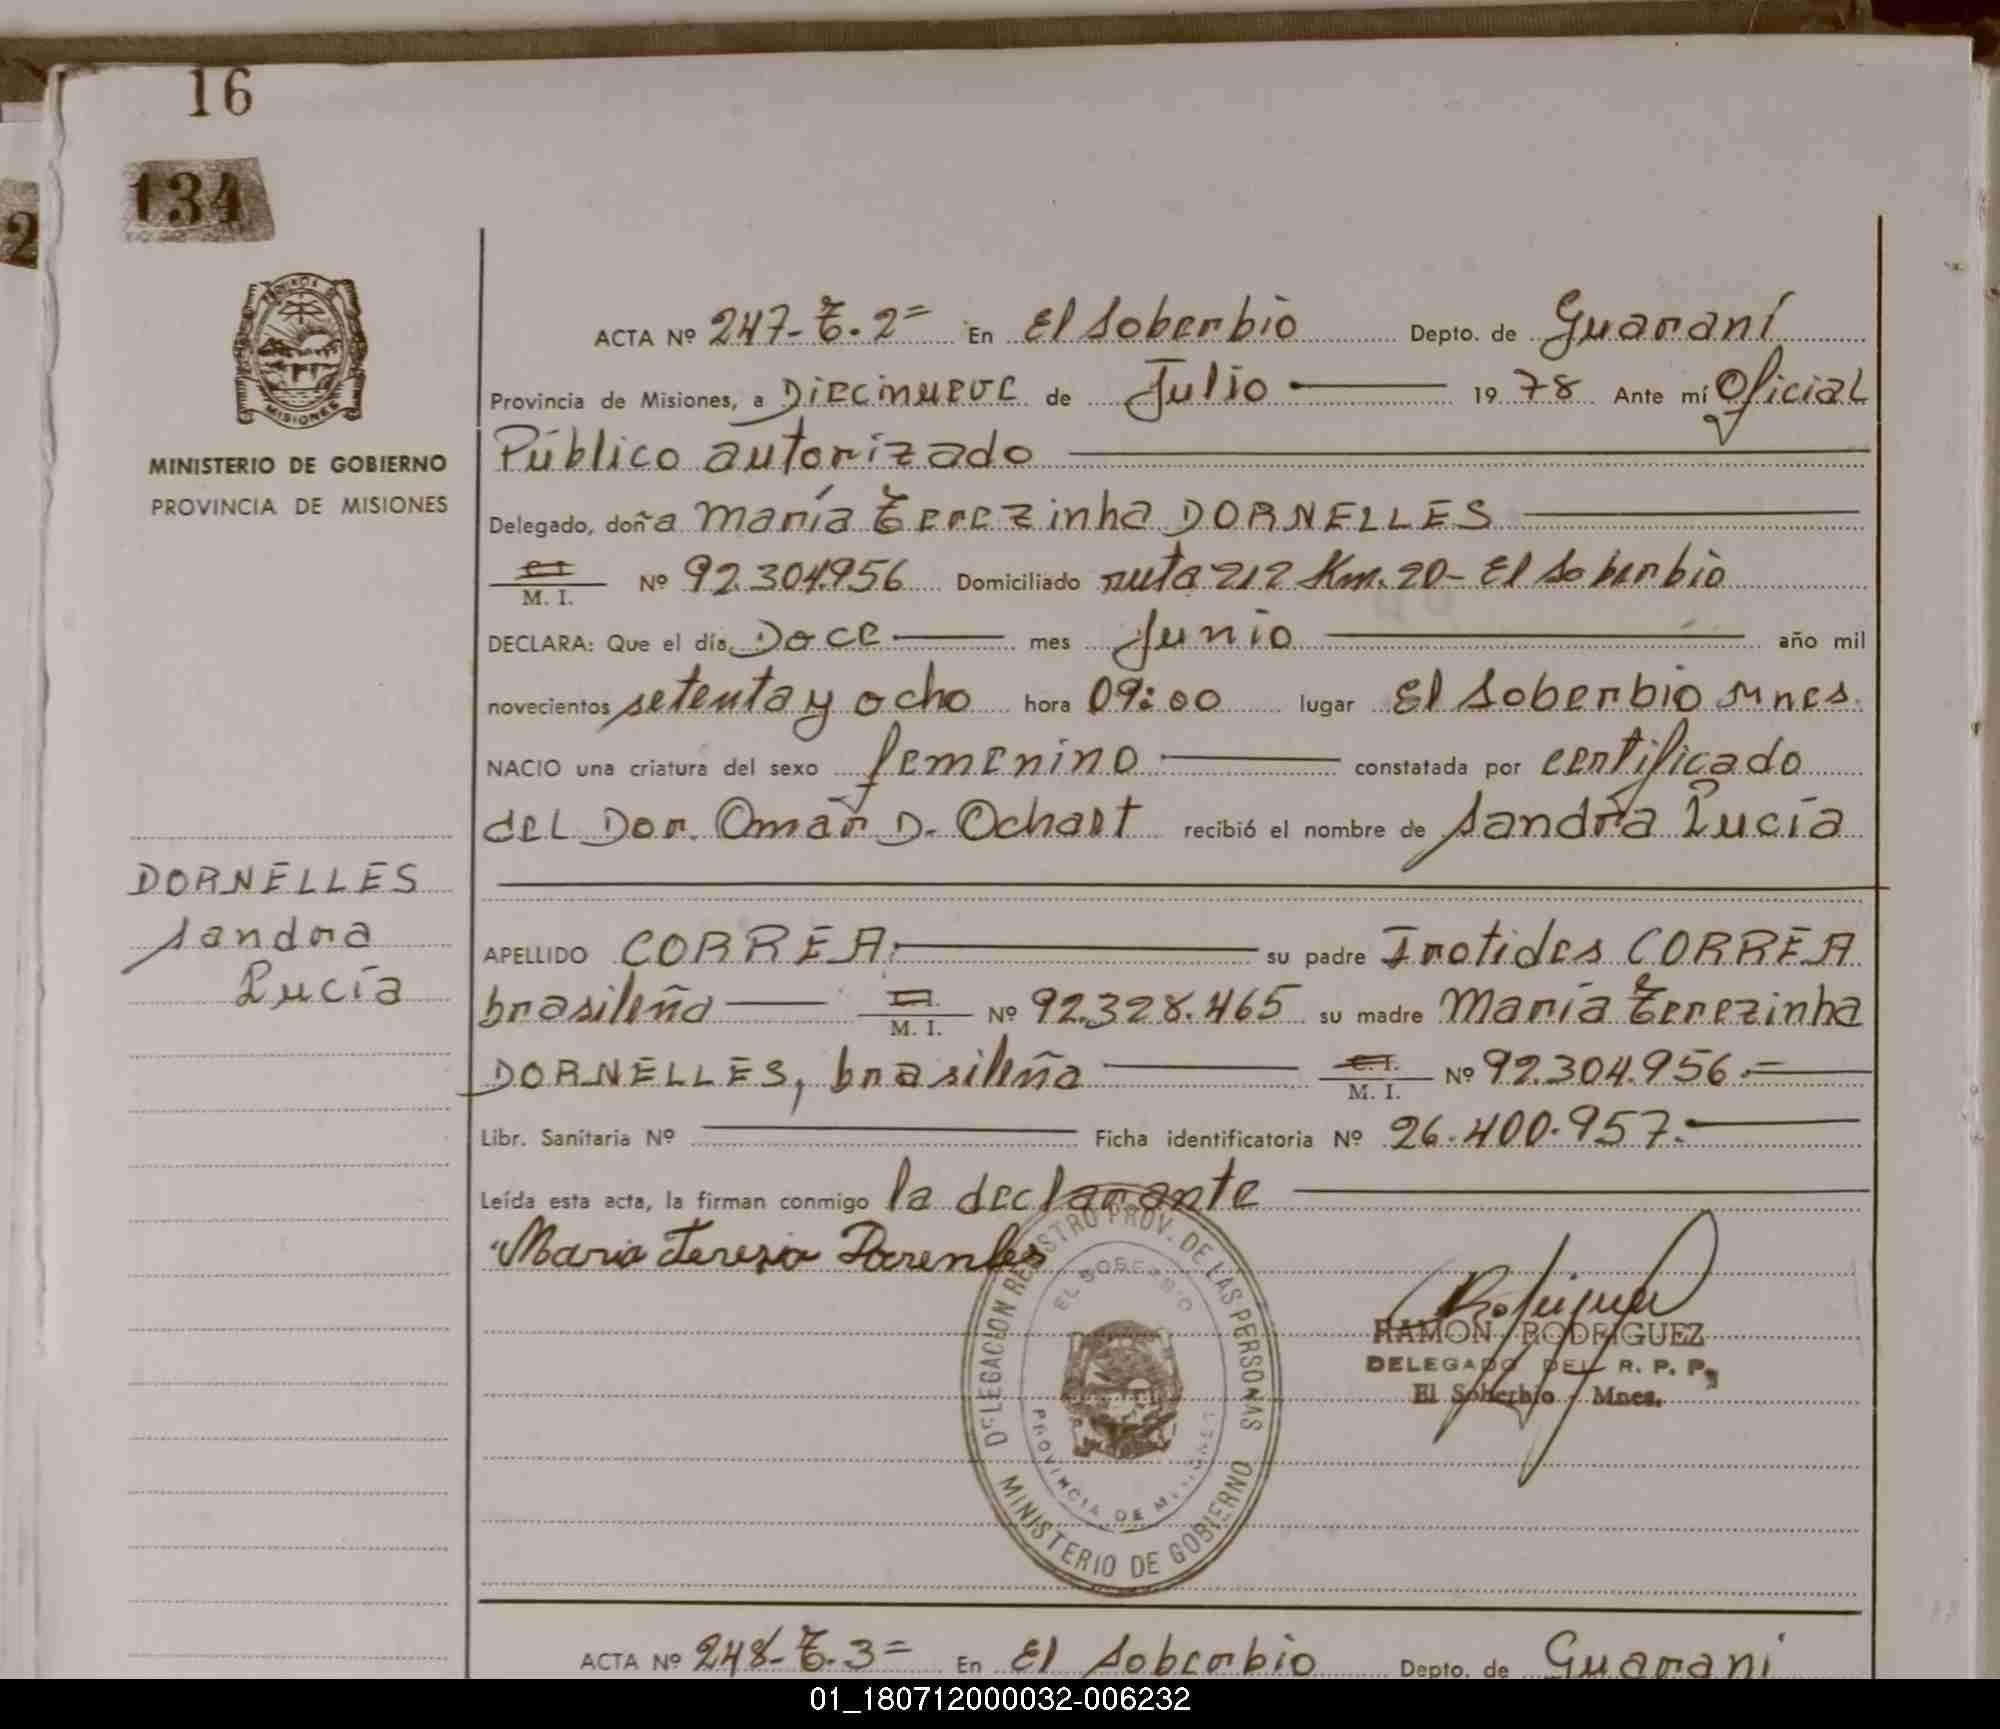 16
134
2
PROVINCIA DE
MISIONES
MINISTERIO DE GOBIERNO
PROVINCIA DE MISIONES
ACTA Nº 247-T.2= En El Soberbio Depto. de Guaraní
Provincia de Misiones, a Diecinueve de Julio 1978 Ante mí Oficial
Público autorizado
Delegado, doña María Terezinha DORNELLES
C.I. M. I. Nº 92.304.956 Domiciliado ruta 212 Km. 20- El Soberbio
DECLARA: Que el día Doce mes Junio año mil
novecientos setenta y ocho hora 09:00 lugar El Soberbio Mnes.
NACIO una criatura del sexo femenino constatada por certificado
del Dor. Omar D. Ochast recibió el nombre de Sandra Lucía
DORNELLES
Sandra
Lucía
APELLIDO CORREA su padre Irotides CORREA
brasileño M. I. Nº 92.328.465 su madre María Terezinha
DORNELLES, brasileña C.I. M. I. Nº 92.304.956.
Libr. Sanitaria Nº Ficha identificatoria Nº 26.400.957.
Leída esta acta, la firman conmigo la declarante
Maria Teresa Dorenles
DELEGACION REGISTRO PROV. DE LAS PERSONAS
EL SOBERBIO
PROVINCIA DE MISIONES
MINISTERIO DE GOBIERNO
RAMON RODRIGUEZ
DELEGADO DEL R. P. P.
El Soberbio - Mnes.
ACTA Nº 248-T.3= En El Soberbio Depto. de Guaraní
01_180712000032-006232